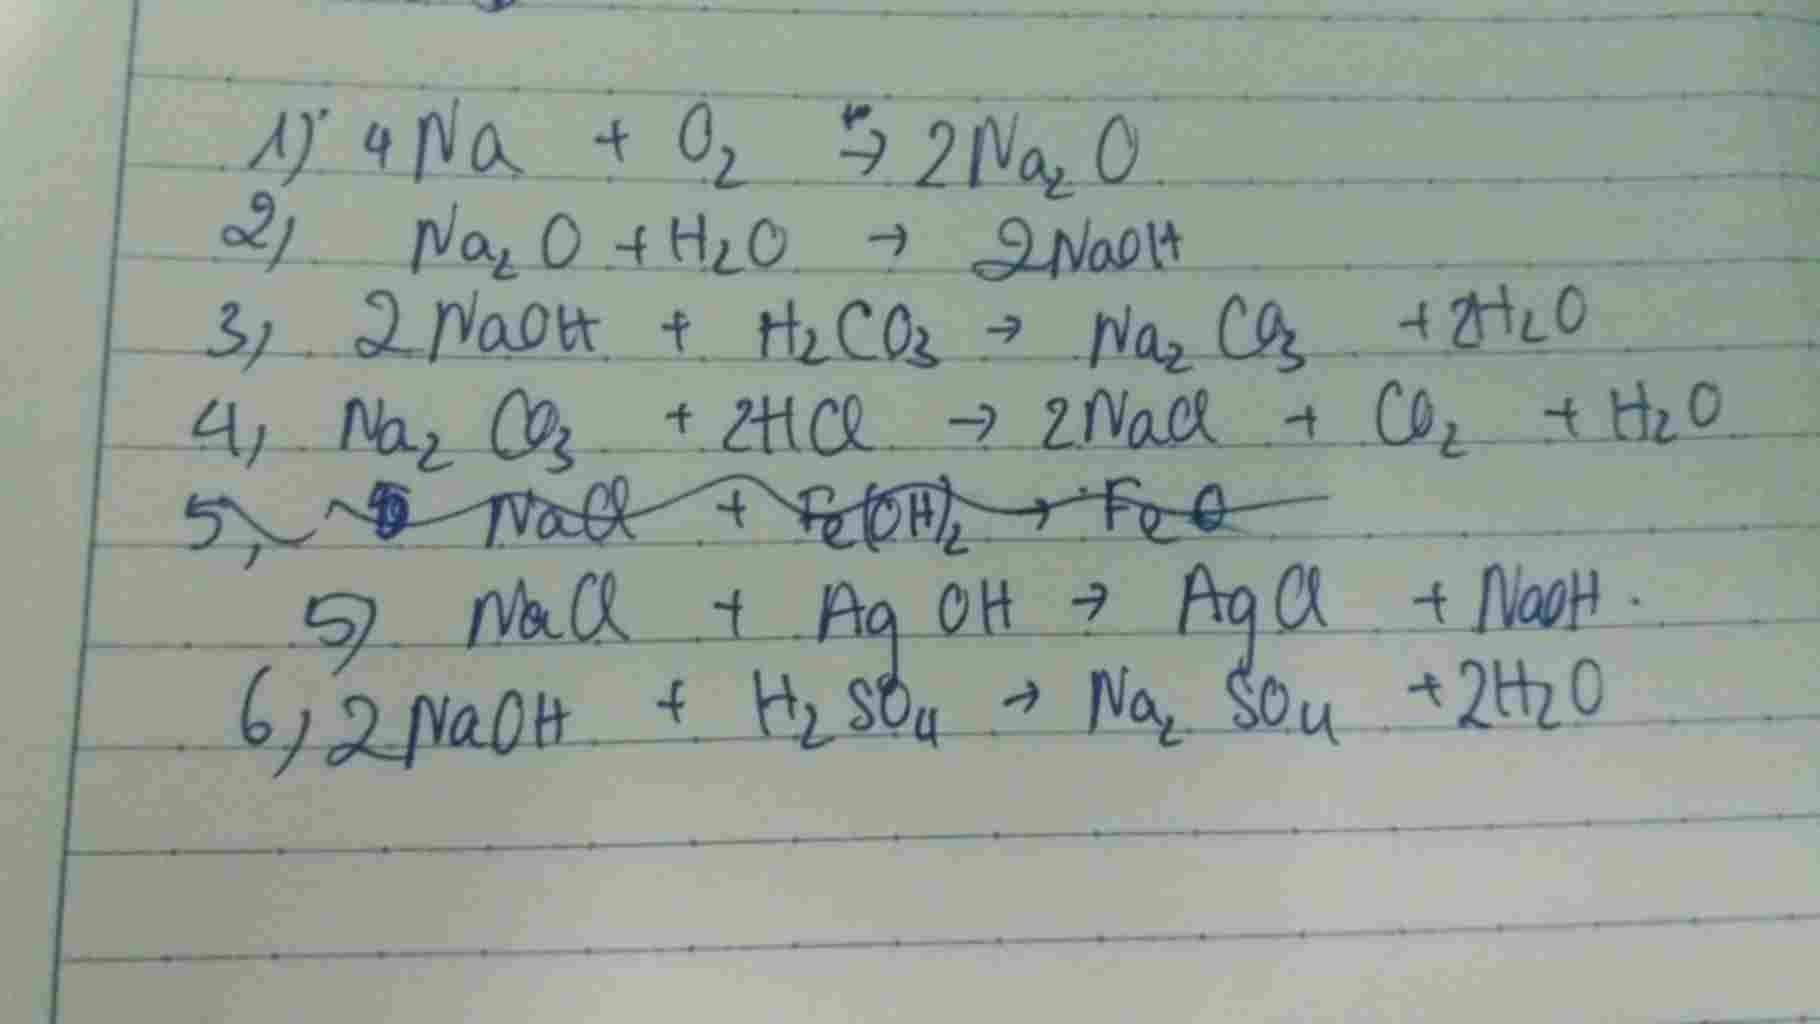 1) 4Na + O₂ t°→ 2Na₂O
2, Na₂O + H₂O → 2NaOH
3, 2NaOH + H₂CO₃ → Na₂CO₃ + 2H₂O
4, Na₂CO₃ + 2HCl → 2NaCl + CO₂ + H₂O
5, NaCl + Fe(OH)₂ → FeO
5) NaCl + AgOH → AgCl + NaOH.
6, 2NaOH + H₂SO₄ → Na₂SO₄ + 2H₂O